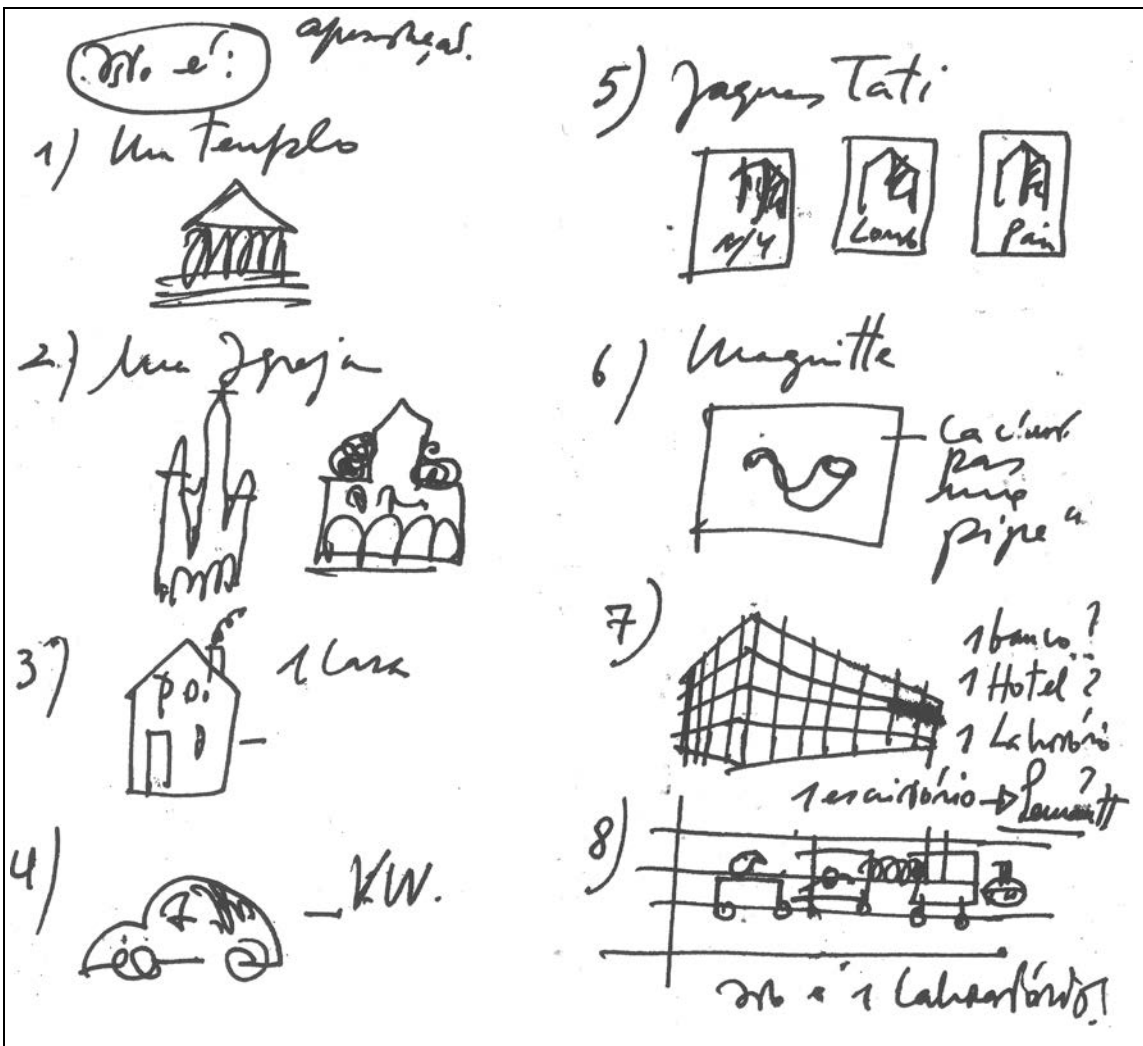 Isto é:
1) Um Templo
2) Uma Igreja
3) 1 Casa
4) VW.
5) Jaques Tati
N/Y
Lond
Paris
6) Magritte
pas
une
pipe"
7) 1 banco?
1 Hotel?
1 Laboratório
?
1 escritório →
8)
Isto é 1 Laboratório!